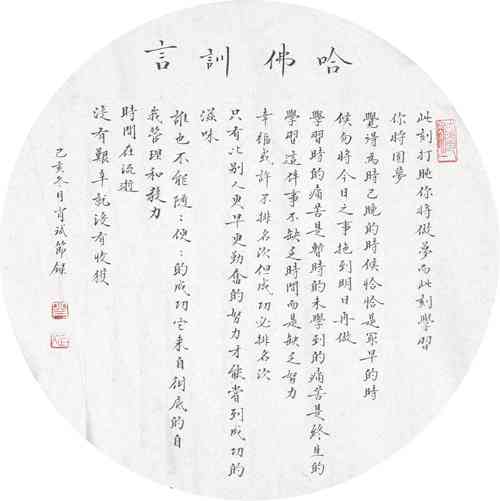 哈佛訓言
此刻打盹你將做夢而此刻學習
你將圓夢
覺得為時已晚的時候恰恰是最早的時
候勿將今日之事拖到明日再做
學習時的痛苦是暫時的未學到的痛苦是終生的
學習這件事不缺乏時間而是缺乏努力
幸福或許不排名次但成功必排名次
只有比别人更早更勤奮的努力才能嘗到成功的
滋味
誰也不能隨:便:的成功它来自徹底的自
我管理和毅力
時間在流逝
沒有艱辛就沒有收獲
己亥冬月肖斌節錄